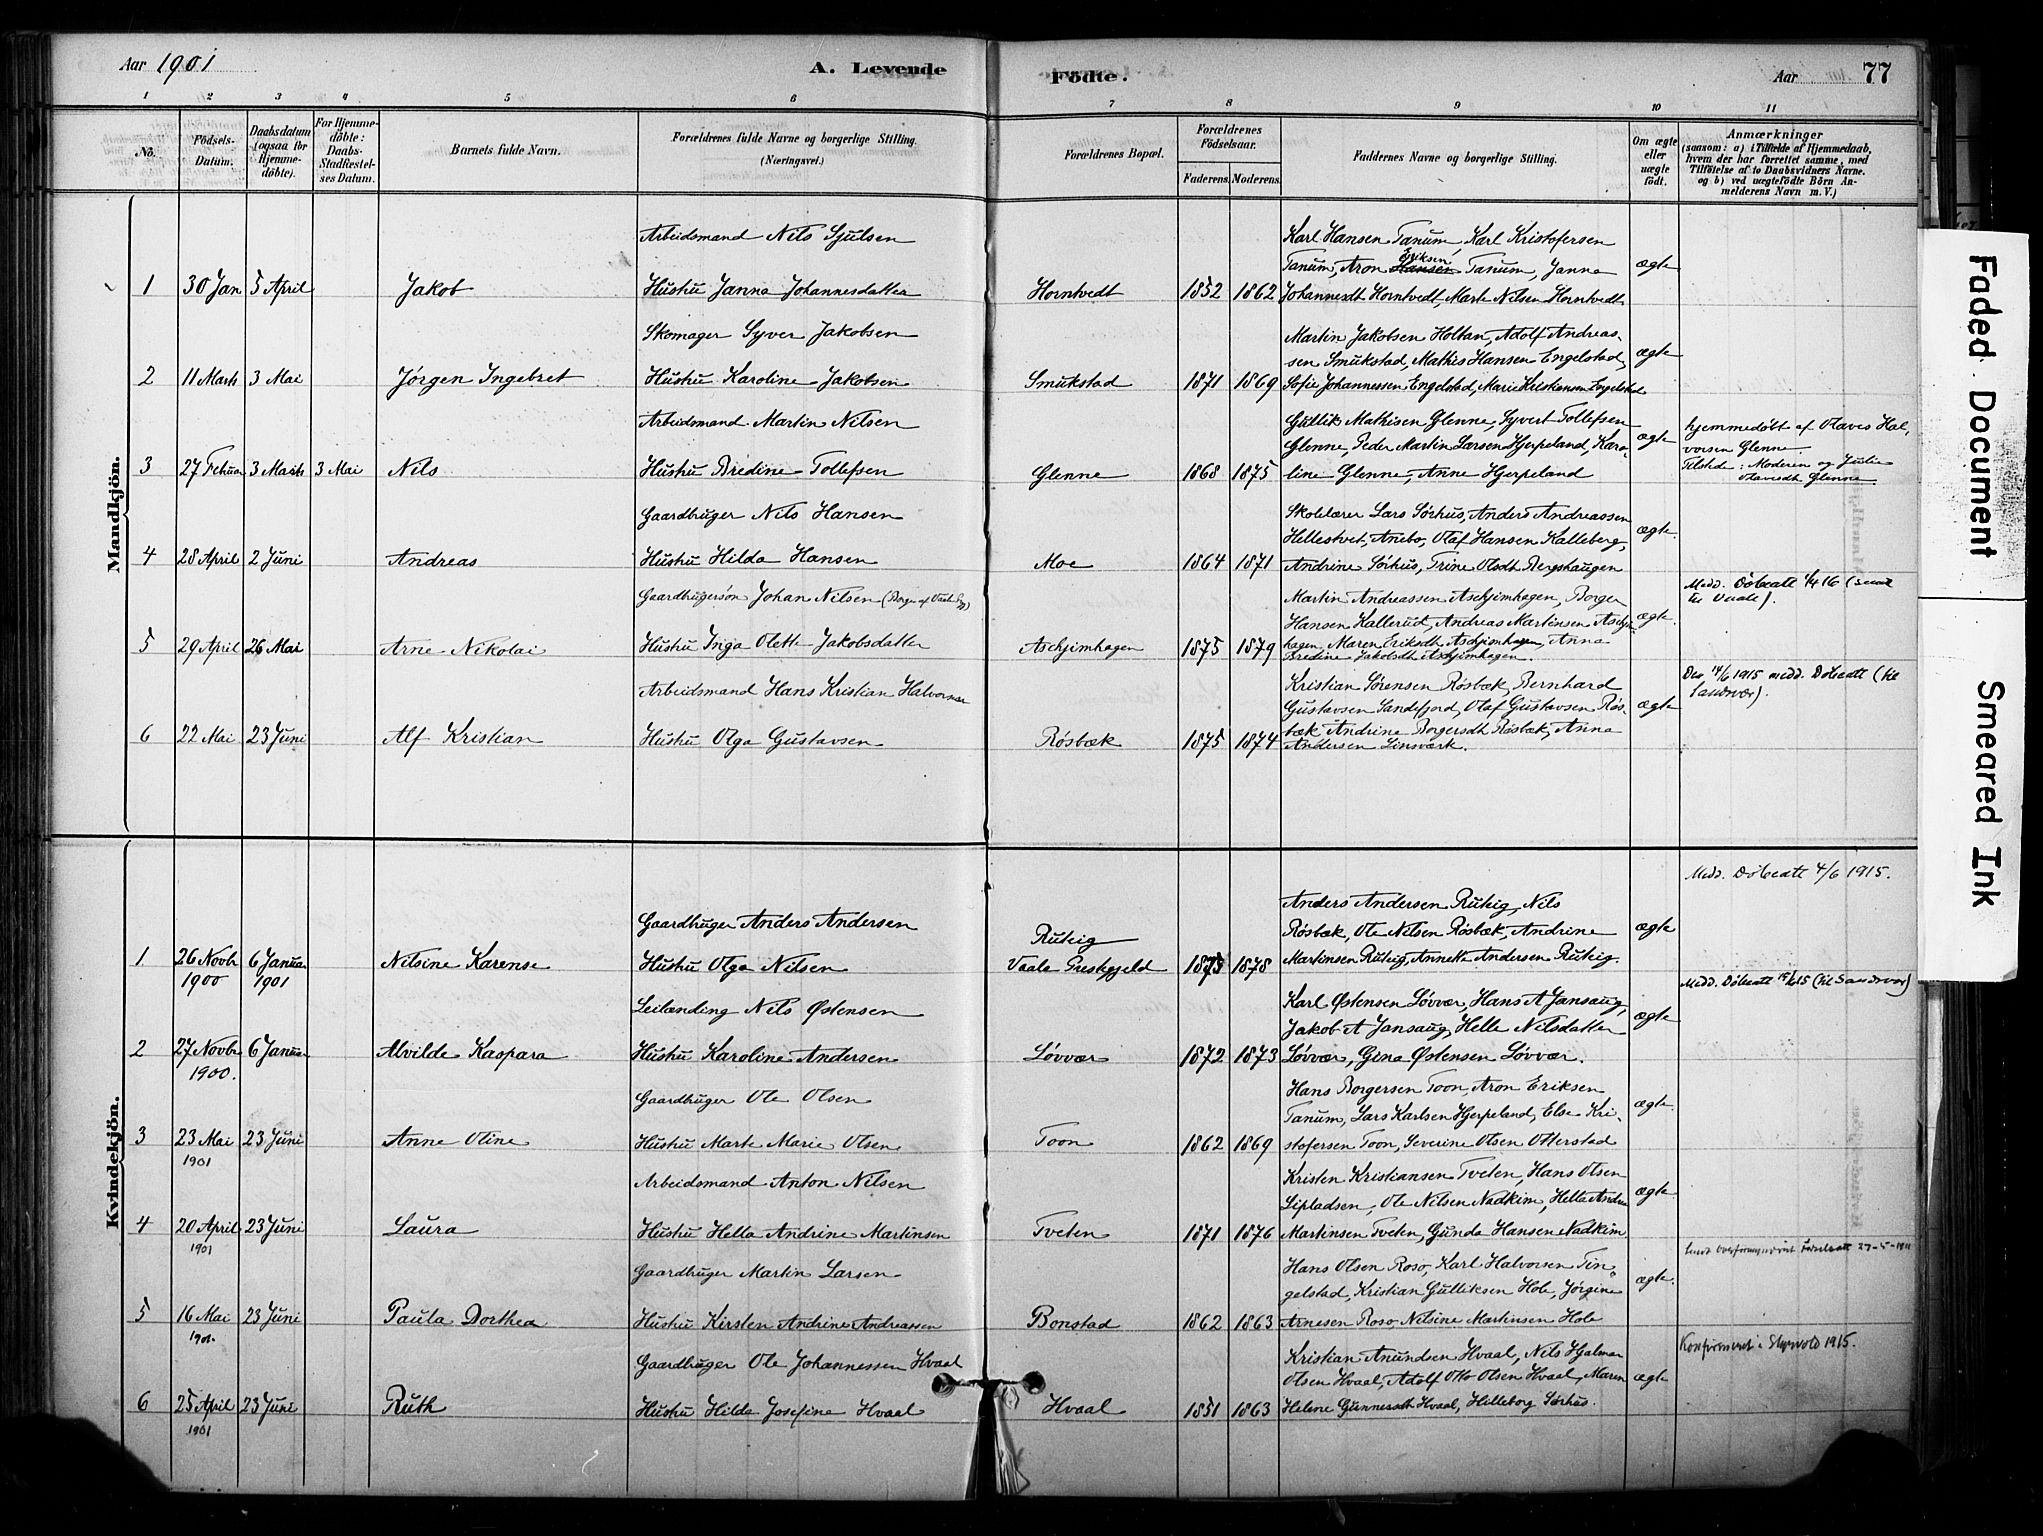 Aar 1901
A. Levende Födte.
Aar
77
1 2 3 4 5 6 7 8 9 10 11
No.
Födsels-Datum.
Daabsdatum (ogsaa for Hjemme-döbte).
For Hjemme-döbte: Daabs-Stadfæstel-ses Datum.
Barnets fulde Navn.
Forældrenes fulde Navne og borgerlige Stilling. (Næringsvei.)
Forældrenes Bopæl.
Forældrenes Födselsaar.
Faderens. Moderens.
Faddernes Navne og borgerlige Stilling.
Om ægte eller uægte födt.
Anmærkninger
(saasom: a) i Tilfælde af Hjemmedaab, hvem der har forrettet samme, med Tilföielse af to Daabsvidners Navne. og b) ved uægtefödte Börn An-melderens Navn m. V.)
Mandkjön.
Arbeidsmand Nils Sjulsen
Karl Hansen Tanum, Karl Kristofersen
Eriksen
Tanum, Aron Hansen Tanum, Janna
ægte
1 30 Jan 5 April Jakob Hustru Janna Johannesdatter Horntvedt 1852 1862 Johannesdt Horntvedt, Marte Nilsen Horntvedt
Skomager Syver Jakobsen
Martin Jakobsen Holtan, Adolf Andreas-
sen Smukstad, Mathis Hansen Engelstad,
ægte
2 11 Marts 3 Mai Jørgen Ingebret Hustru Karoline Jakobsen Smukstad 1871 1869 Sofie Johannessen Engelstad, Marie Kristiansen Engelstad
Arbeidsmand Martin Nilsen
Gullik Mathisen Glenne, Syvert Tollefsen
Glenne, Peder Martin Larsen Hjerpeland, Karo-
ægte
hjemmedøbt af Olaves Hal-
vorsen Glenne.
3 27 Februar 3 Marts 3 Mai Nils Hustru Bredine Tollefsen Glenne 1868 1875 line Glenne, Anne Hjerpeland
Tilstede: Moderen og Julie
Olavesdt Glenne
Gaardbruger Nils Hansen
Skolelærer Lars Sørhus, Anders Andreassen
Hellestvet, Anebo, Olaf Hansen Kalleberg,
ægte.
4 28 April 2 Juni Andreas Hustru Hilda Hansen Moe 1864 1871 Andrine Sørhus, Trine Olsdt Bergshaugen
Gaardbrugersøn Johan Nilsen
Martin Andreassen Aschjimhagen, Borger
Hansen Kallerud, Andreas Martinsen Aschjim-
ægte.
Medd. Døbeatt 1/4 16 (sendt
til Vaale).
5 29 April 26 Mai Arne Nikolai Hustru Inga Olette Jakobsdatter Aschjimhagen 1875 1879 hagen, Maren Eriksdt Aschjimhagen, Anna
Bredine Jakobsdt Aschjimhagen.
Arbeidsmand Hans Kristian Halvorsen
Kristian Sørensen Røsbæk, Bernhard
Gustavsen Sandefjord, Olaf Gustavsen Røs-
ægte
Den 14/6 1915 medd. Døbeatt (til
Sandsvær).
6 22 Mai 23 Juni Alf Kristian Hustru Olga Gustavsen Røsbæk 1875 1874 bæk Andrine Borgersdt Røsbæk, Anna
Andersen Linsværk.
Kvindekjön.
Medd. Døbeatt 4/6 1915.
Gaardbruger Anders Andersen
Anders Andersen Rukig, Nils
Røsbæk, Ole Nilsen Røsbæk, Andrine
ægte
Rukig
1 26 Novbr 1900 6 Januar 1901 Nilsine Karense Hustru Olga Nilsen Vaale Prestegjeld 1875 1878 Martinsen Rukig, Annette Andersen Rukig.
Leilænding Nils Østensen
Karl Østensen Løvvær, Hans A Jansaug,
Jakob A Jansaug, Helle Nilsdatter
ægte
Medd. Døbeatt 15/6 15 (til Sandsvær)
2 27 Novbr 1900. 6 Januar Alvilde Kaspara Hustru Karoline Andersen Løvvær 1872 1873 Løvvær, Gina Østensen Løvvær.
Gaardbruger Ole Olsen
Hans Borgersen Toon, Aron Eriksen
Tanum, Lars Karlsen Hjerpeland, Else Kri-
ægte.
3 23 Mai 1901 23 Juni Anne Oline Hustru Marte Marie Olsen Toon 1862 1869 stofersen Toon, Severine Olsen Otterstad
Arbeidsmand Anton Nilsen
Kristen Kristiansen Tveten, Hans Olsen
Lipladsen, Ole Nilsen Nadkim, Hella Andrine
ægte
4 20 April 1901 23 Juni Laura Hustru Hella Andrine Martinsen Tveten 1871 1876 Martinsen Tveten, Gunda Hansen Nadkim
Gaardbruger Martin Larsen
Hans Olsen Roso, Karl Halvorsen Tin-
gelstad, Kristian Gulliksen Hole, Jørgine
ægte.
5 16 Mai 1901. 23 Juni Paula Dorthea Hustru Kirsten Andrine Andreassen Bonstad 1862 1863 Arnesen Roso, Nilsine Martinsen Hole
Gaardbruger Ole Johannessen Hvaal
Kristian Anundsen Hvaal, Nils Hjalmar
Olsen Hvaal, Adolf Otto Olsen Hvaal, Maren
ægte
Konfirmeret i Styrvold 1915.
6 25 April 1901 23 Juni Ruth Hustru Hilda Josefine Hvaal Hvaal 1851 1863 Helene Gunnesdt Hvaal, Hilleborg Sørhus.
Faded Document
Smeared Ink